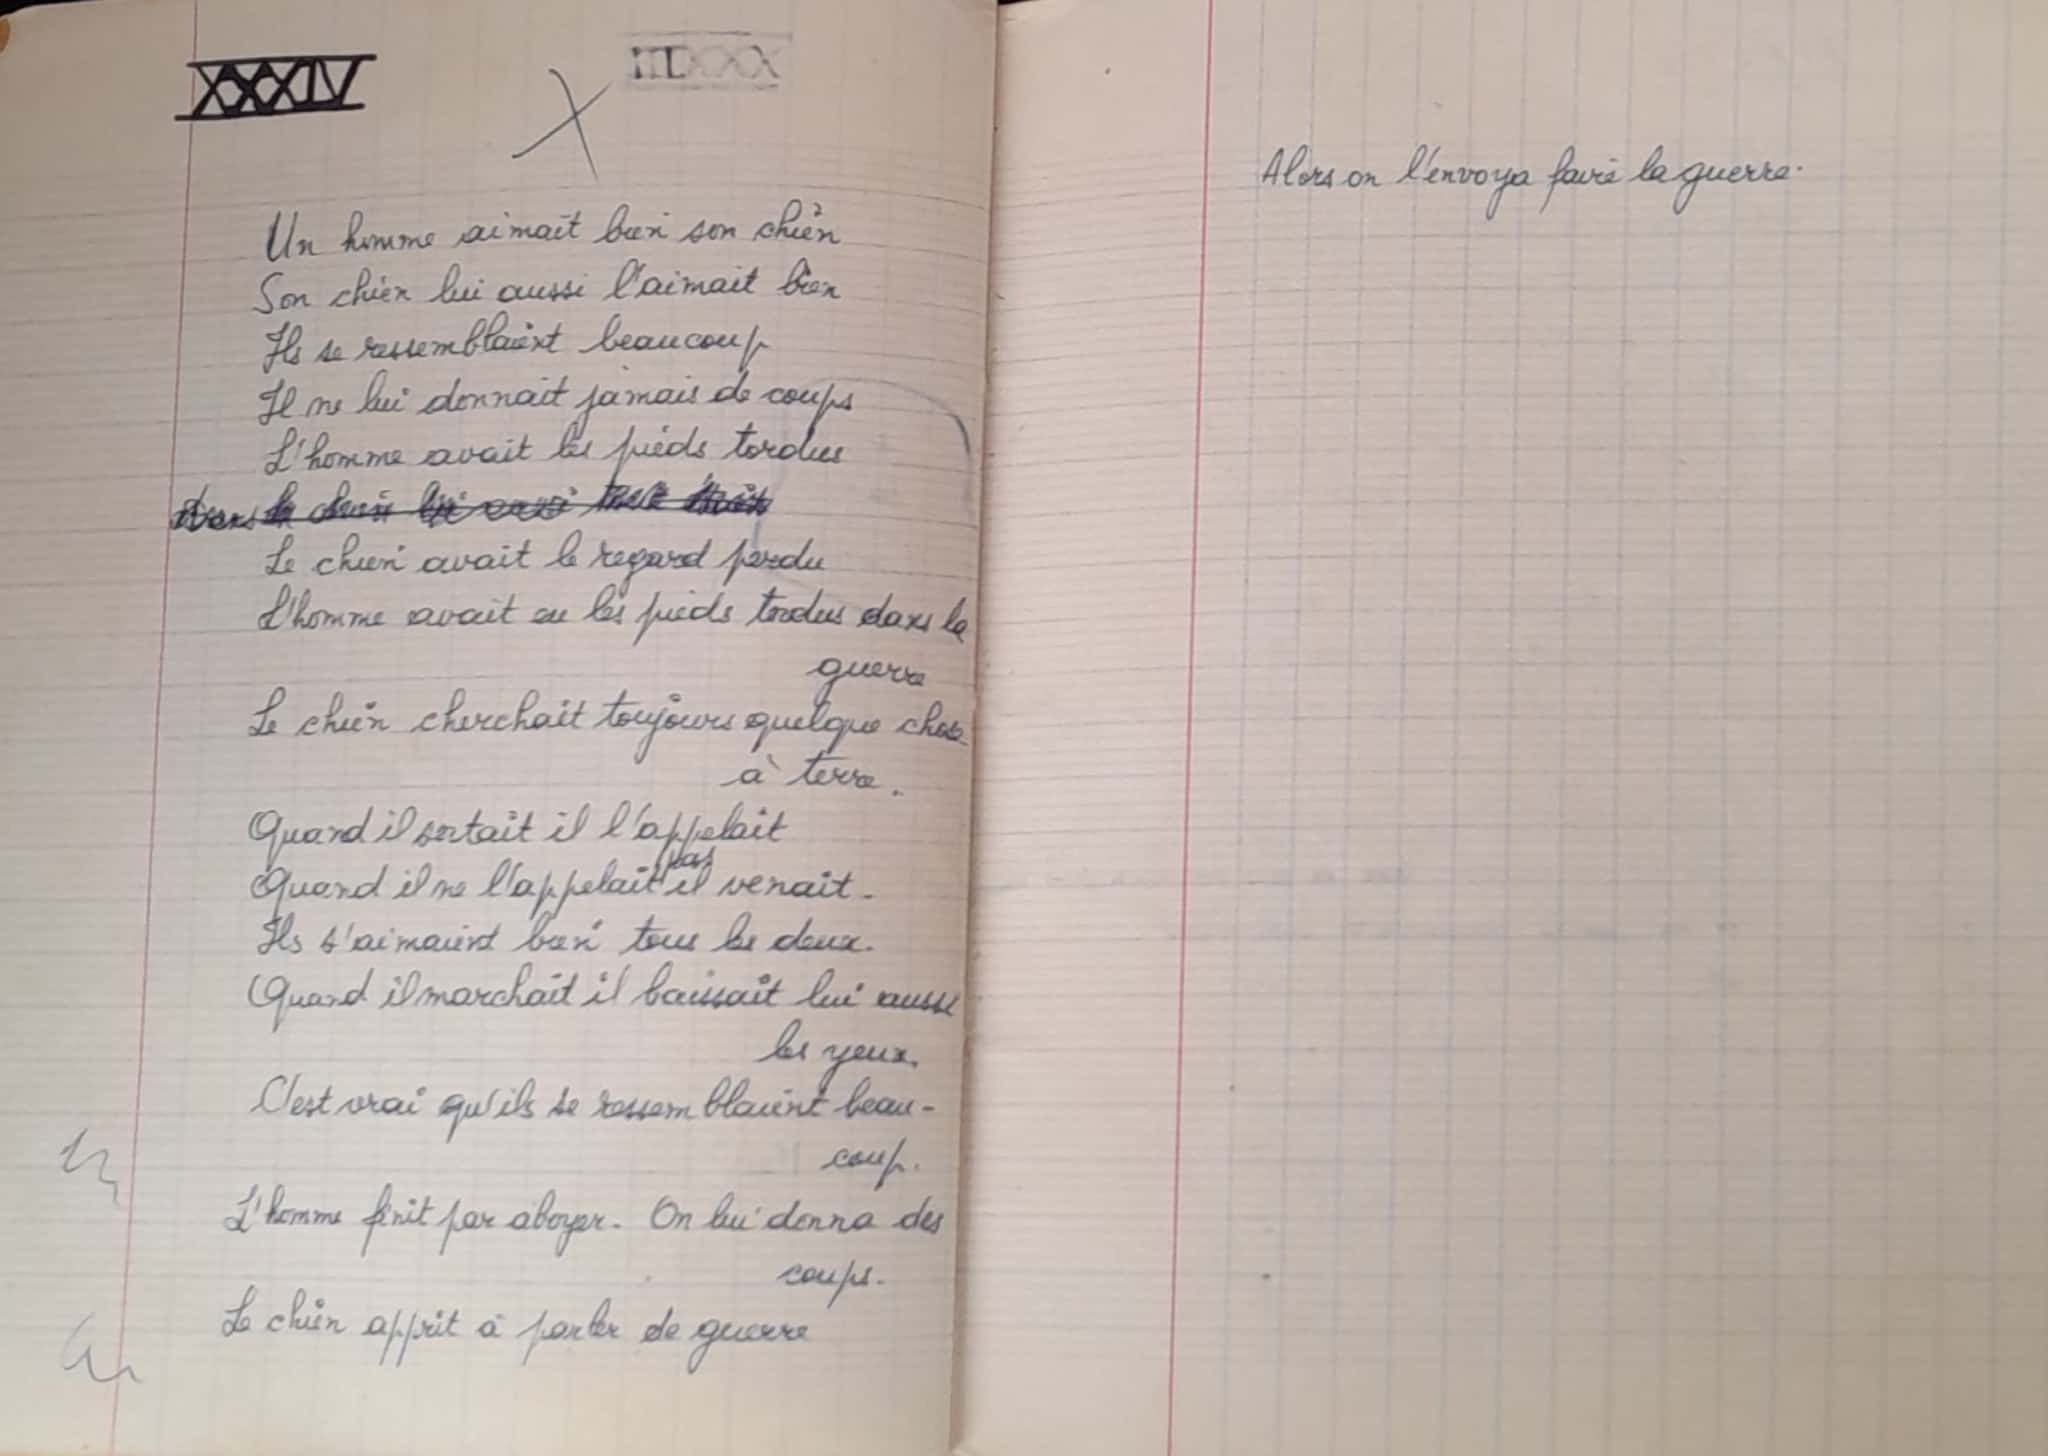 XXXIV
Un homme aimait bien son chien
Son chien lui aussi l'aimait bien
Ils se ressemblaient beaucoup
Il ne lui donnait jamais de coups
L'homme avait les pieds tordus
le chien lui aussi
Le chien avait le regard perdu
L'homme avait eu les pieds tordus dans la
guerre
Le chien cherchait toujours quelque chose
à terre.
Quand il sortait il l'appelait
Quand il ne l'appelait pas il venait.
Ils s'aimaient bien tous les deux.
Quand il marchait il baissait lui aussi
les yeux.
C'est vrai qu'ils se ressemblaient beau-
coup.
L'homme finit par aboyer. On lui donna des
coups.
Le chien apprit à parler de guerre
Alors on l'envoya faire la guerre.